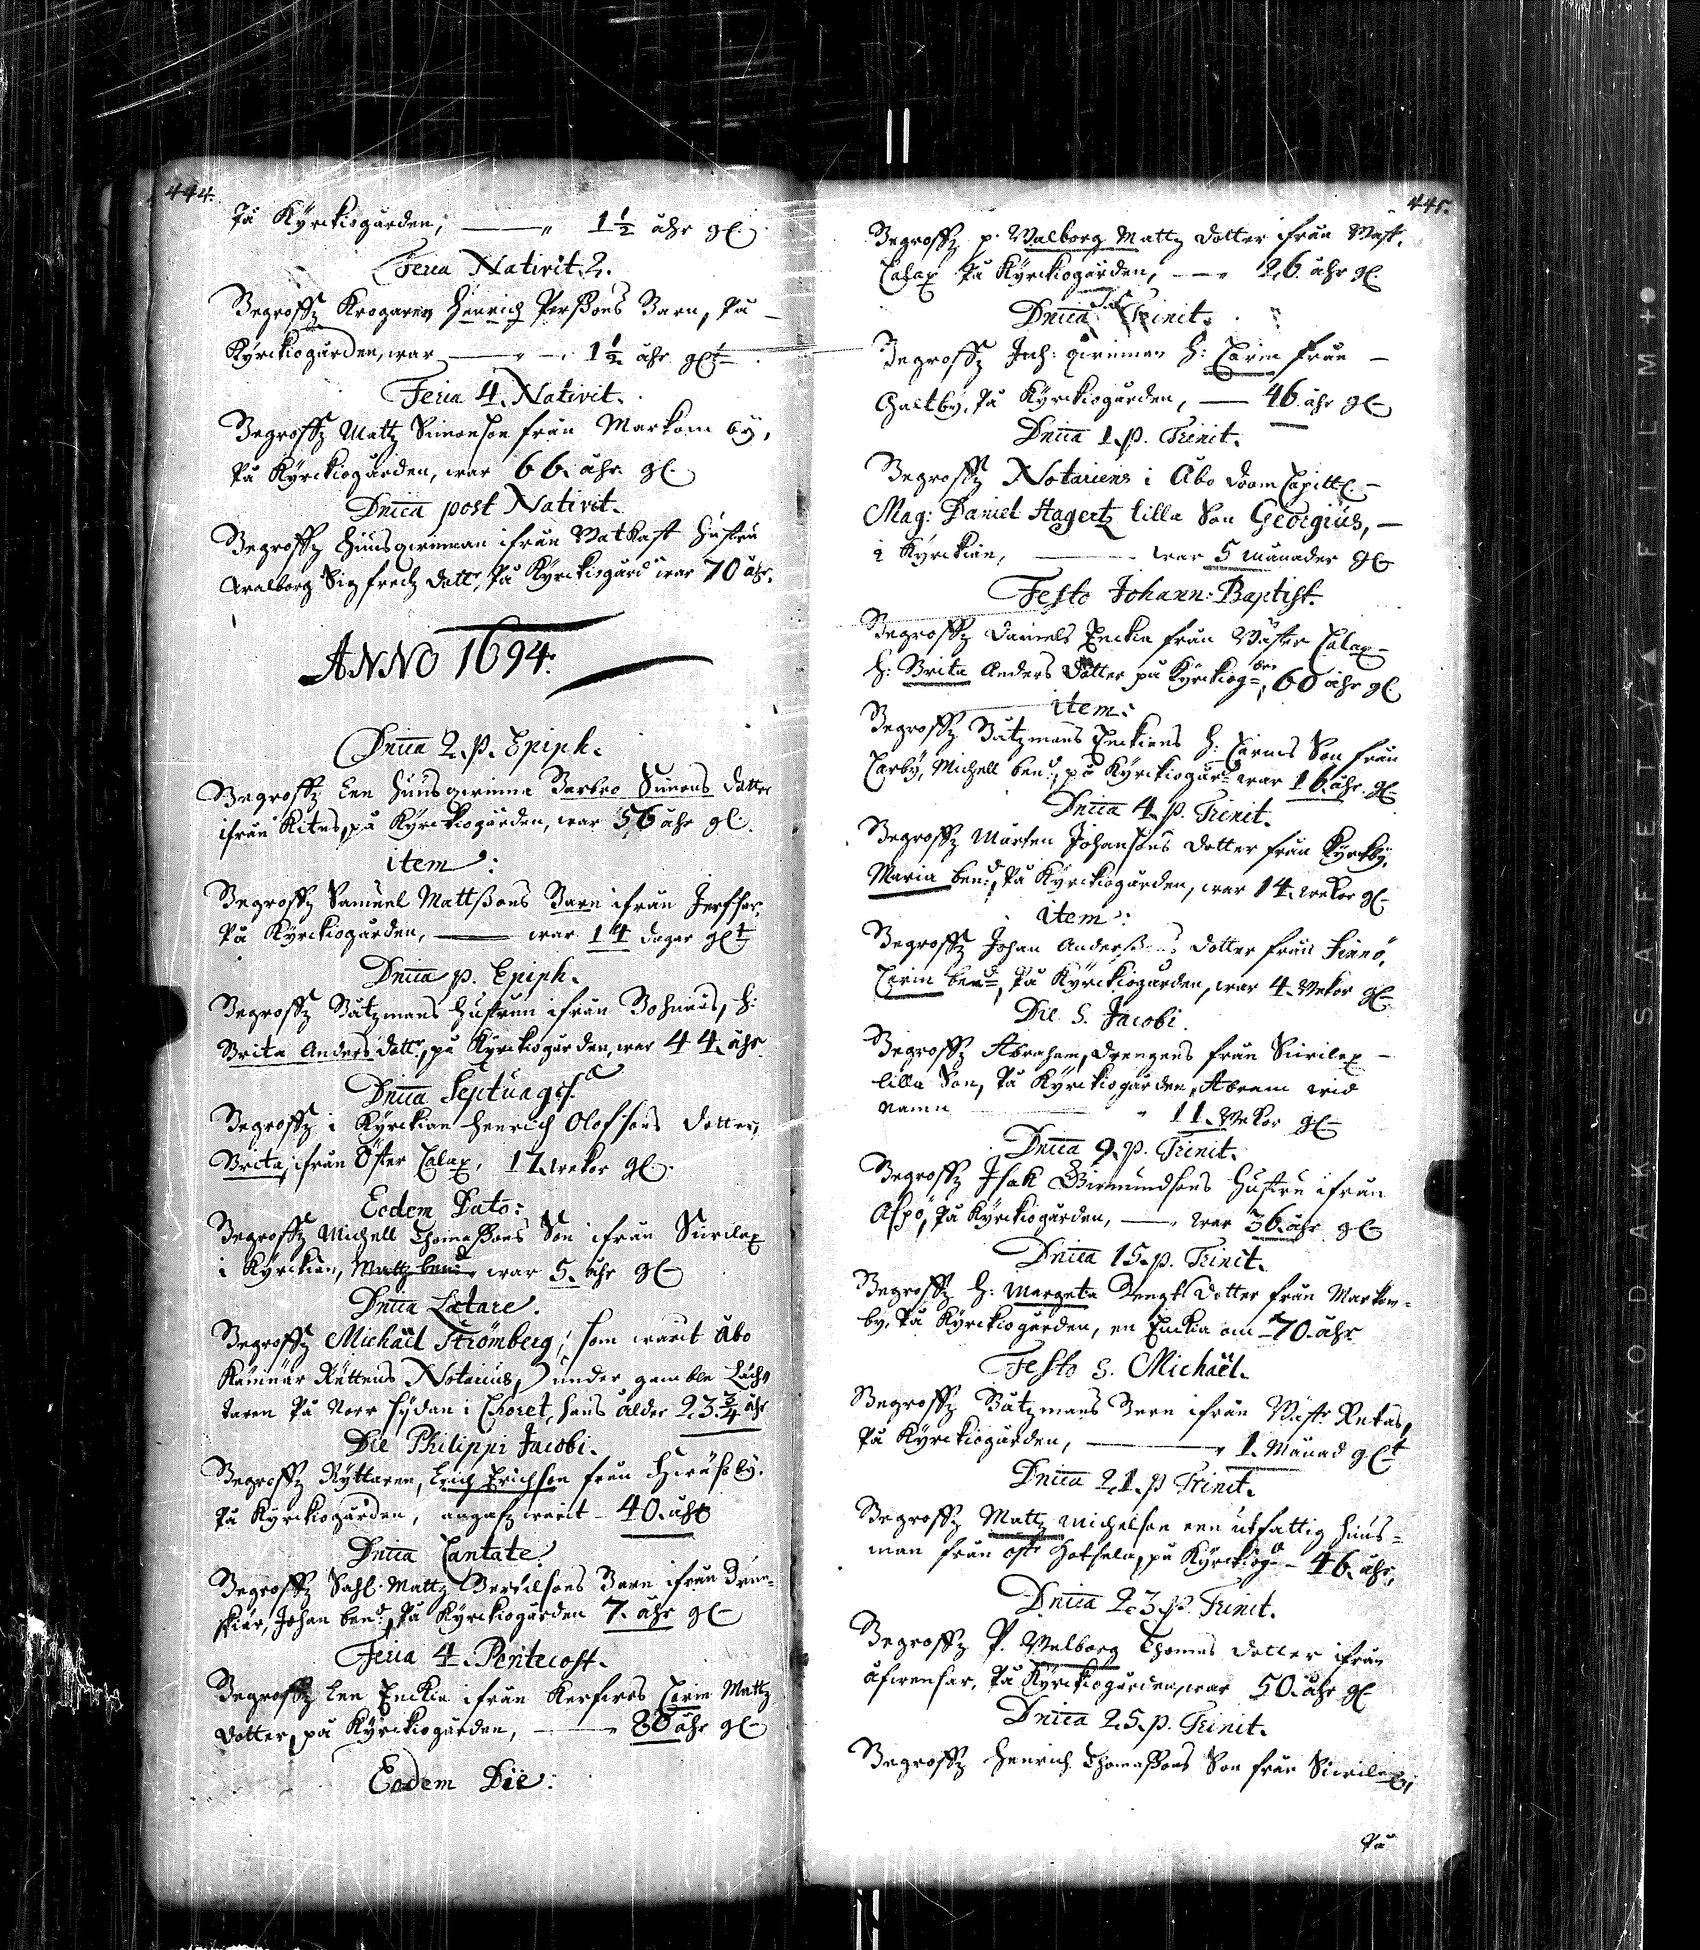 444.
På Kyrkiogården, 1 1/2 åhr gl.
Feria Nativit. 2.
Begroffz Krogaren Henrich Perssons Barn, På
Kyrckiogården, war 1 1/2 åhr glt
Feria 4. Nativit.
Begroffz Mattz Simonson från Markom by,
På Kyrckiogården, war 66. åhr gl.
Dnica post Nativit.
Begroffz Huusqwinnan ifrån Hustru
Walborg Sigfredz dottr, På Kyrckiogård war 70 åhr.
ANNO 1694.
Dnica 2. p. Epiph.
Begroffz Een Huusqwinna Barbro Simons dotter
ifrån Kitus, på Kyrckiogården, war 56 åhr gl.
item:
Begroffz Samuel Mattssons Barn ifrån
På Kyrckiogården, war 14 dagar glt
Dnica p. Epiph.
Begroffz Båtzmans Hustrun ifrån Bohnäs, H:
Brita Anders dottr, på Kyrckiogården, war 44. åhr
Dnica Septuages.
Begroffz i Kyrckian Henrich Olofsons dotter,
Brita, ifrån Öster Calax, 17. wekor gl.
Eodem Dato:
Begroffz Michell Thomassons Son ifrån
i Kyrckian, Mattz bend war 5. åhr gl
Dnica Lætare.
Begroffz Michaël Strömberg, som warit Åbo
Kämnär Rättens Notarius, under gamble
På Norr sydan i Choret, hans ålder 23. 3/4 åhr
Die Philippi Jacobi.
Begroffz Ryttaren, Erich Erichson från
På Kyrckiogården, warit 40. åhr
Dnica Cantate.
Begroffz Sahl. Mattz Bertilsons Barn ifrån
skiär, Johan bend, På Kyrckiogården 7. åhr gl
Feria 4. Pentecost.
Begroffz Een Enckia ifrån Carin Mattz
dotter, på Kyrckiogården, 80 åhr gl
Eodem Die:
445.
Begroffz p. Walborg Mattz dotter ifrån Wäst.
Calax På Kyrckiogården, 26 åhr gl.
Dnica Trinit.
Begroffz Inh: qwinnan H: Carin från
Galtby, På Kyrckiogården, 46. åhr gl
Dnica 1. p. Trinit.
Begroffz Notariens i Åbo Doom Capittl.
Mag: Daniel Hagertz lilla Son Georgius,
i Kyrckian, war 5 månader gl
Festo Johann: Baptist.
Begroffz Daniels Enckia från Wäster Calax
H: Brita Anders Dotter på Kyrckiog den, 60 åhr gl
item:
Begroffz Båtzmans Enckians H: Carins Son från
Carby, Michell bend, på Kyrckiogård war 16. åhr. gl
Dnica 4. p. Trinit.
Begroffz Mårten Johansons dotter från Kyrckby,
Maria bend, På Kyrckiogården, war 14. wekor gl
item:
Begroffz Johan Anderss dotter från Finnö,
Carin bend, På Kyrckiogården, war 4. wekor gl
Die S. Jacobi.
Begroffz Abraham, drengens från
lilla Son, På Kyrckiogården, Abram wid
namn 11. wekor gl
Dnica 9. p. Trinit.
Begroffz Isak Hustru ifrån
Aspö, På Kyrckiogården, war 36. åhr gl
Dnica 15. p. Trinit.
Begroffz H: Margeta Bengts Dotter från Markom-
by, På Kyrckiogården, en Enckia om 70. åhr
Festo S. Michaël.
Begroffz Båtzmans Barn ifrån Wästr Retas,
På Kyrckiogården, 1. Månad glt
Dnica 21. p Trinit.
Begroffz Mattz Michelson een utfattig Huus-
man från östr på Kyrckiog 46. åhr,
Dnica 23. p. Trinit.
Begroffz P. Walborg Thomas dotter ifrån
På Kyrckiogården, war 50. åhr gl
Dnica 25. p. Trinit.
Begroffz Henrich Thomassons Son från
På
KODAK SAFETY FILM